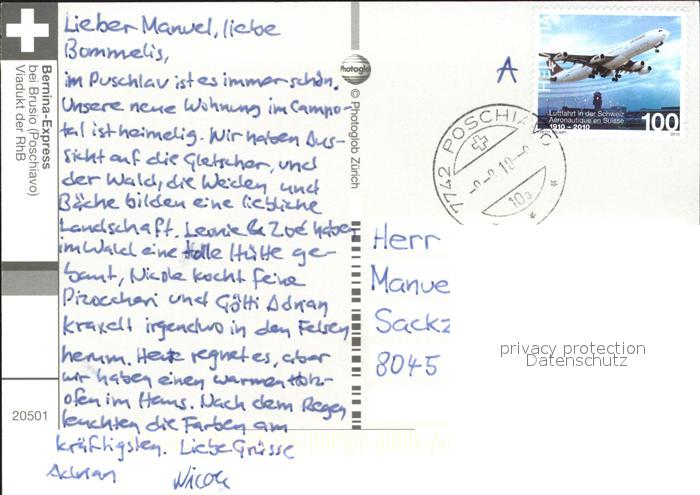 Lieber Manuel, liebe
Bommelis,
im Puschlav ist es immer schön.
Unsere neue Wohnung im Campo-
tal ist heimelig. Wir haben Aus-
sicht auf die Gletscher, und
der Wald, die Weiden und
Bäche bilden eine liebliche
Landschaft. Leonie & Zoé haben
im Wald eine tolle Hütte ge-
baut, Nicole kocht feine
Pizoccheri und Götti Adrian
kraxelt irgendwo in den Felsen
herum. Heute regnet es, aber
wir haben einen warmen Holz-
ofen im Haus. Nach dem Regen
leuchten die Farben am
kräftigsten. Liebe Grüsse
Adrian Nicole
Bernina-Express
bei Brusio (Poschiavo)
Viadukt der RhB
20501
Photoglob
© Photoglob Zürich
A
7742 POSCHIAVO
10a
HELVETIA
Luftfahrt in der Schweiz
Aéronautique en Suisse
1910 – 2010
100
2010
Herr
Manue
Sackz
8045
privacy protection
Datenschutz